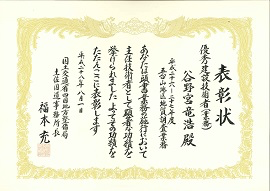 表彰状
優秀建設技術者(業務)
平成二十六-二十七年度
地質調査業務
谷野宮竜浩殿
あなたは頭書業務の施行において
主任技術者として顕著な功績を
挙げられました よってその功績を
たたえここに表彰します
平成二十八年八月一日
国土交通省四国地方整備局
事務所長
福本充